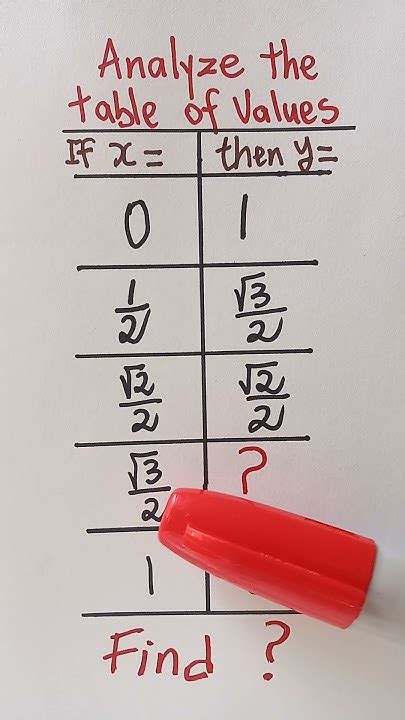 Analyze the
table of Values
If x= then y=
0 1
1/2 √3/2
√2/2 √2/2
√3/2 ?
1
Find ?